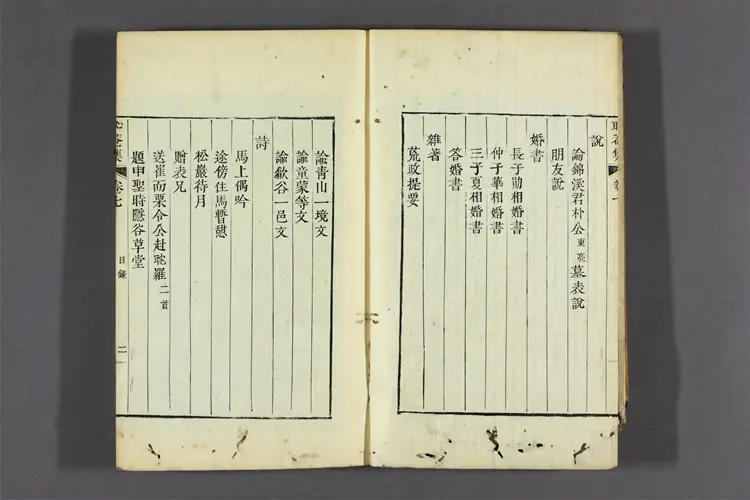 說
論錦溪君朴公東亮墓表說
朋友說
婚書
長子勛相婚書
仲子華相婚書
三子夏相婚書
答婚書
雜著
荒政提要
諭青山一境文
諭童蒙等文
諭歙谷一邑文
詩
馬上偶吟
途傍住馬暫憩
松巖待月
贈表兄
送崔而栗令公赴耽羅二首
題申聖時隱谷草堂
卷七
目錄
二